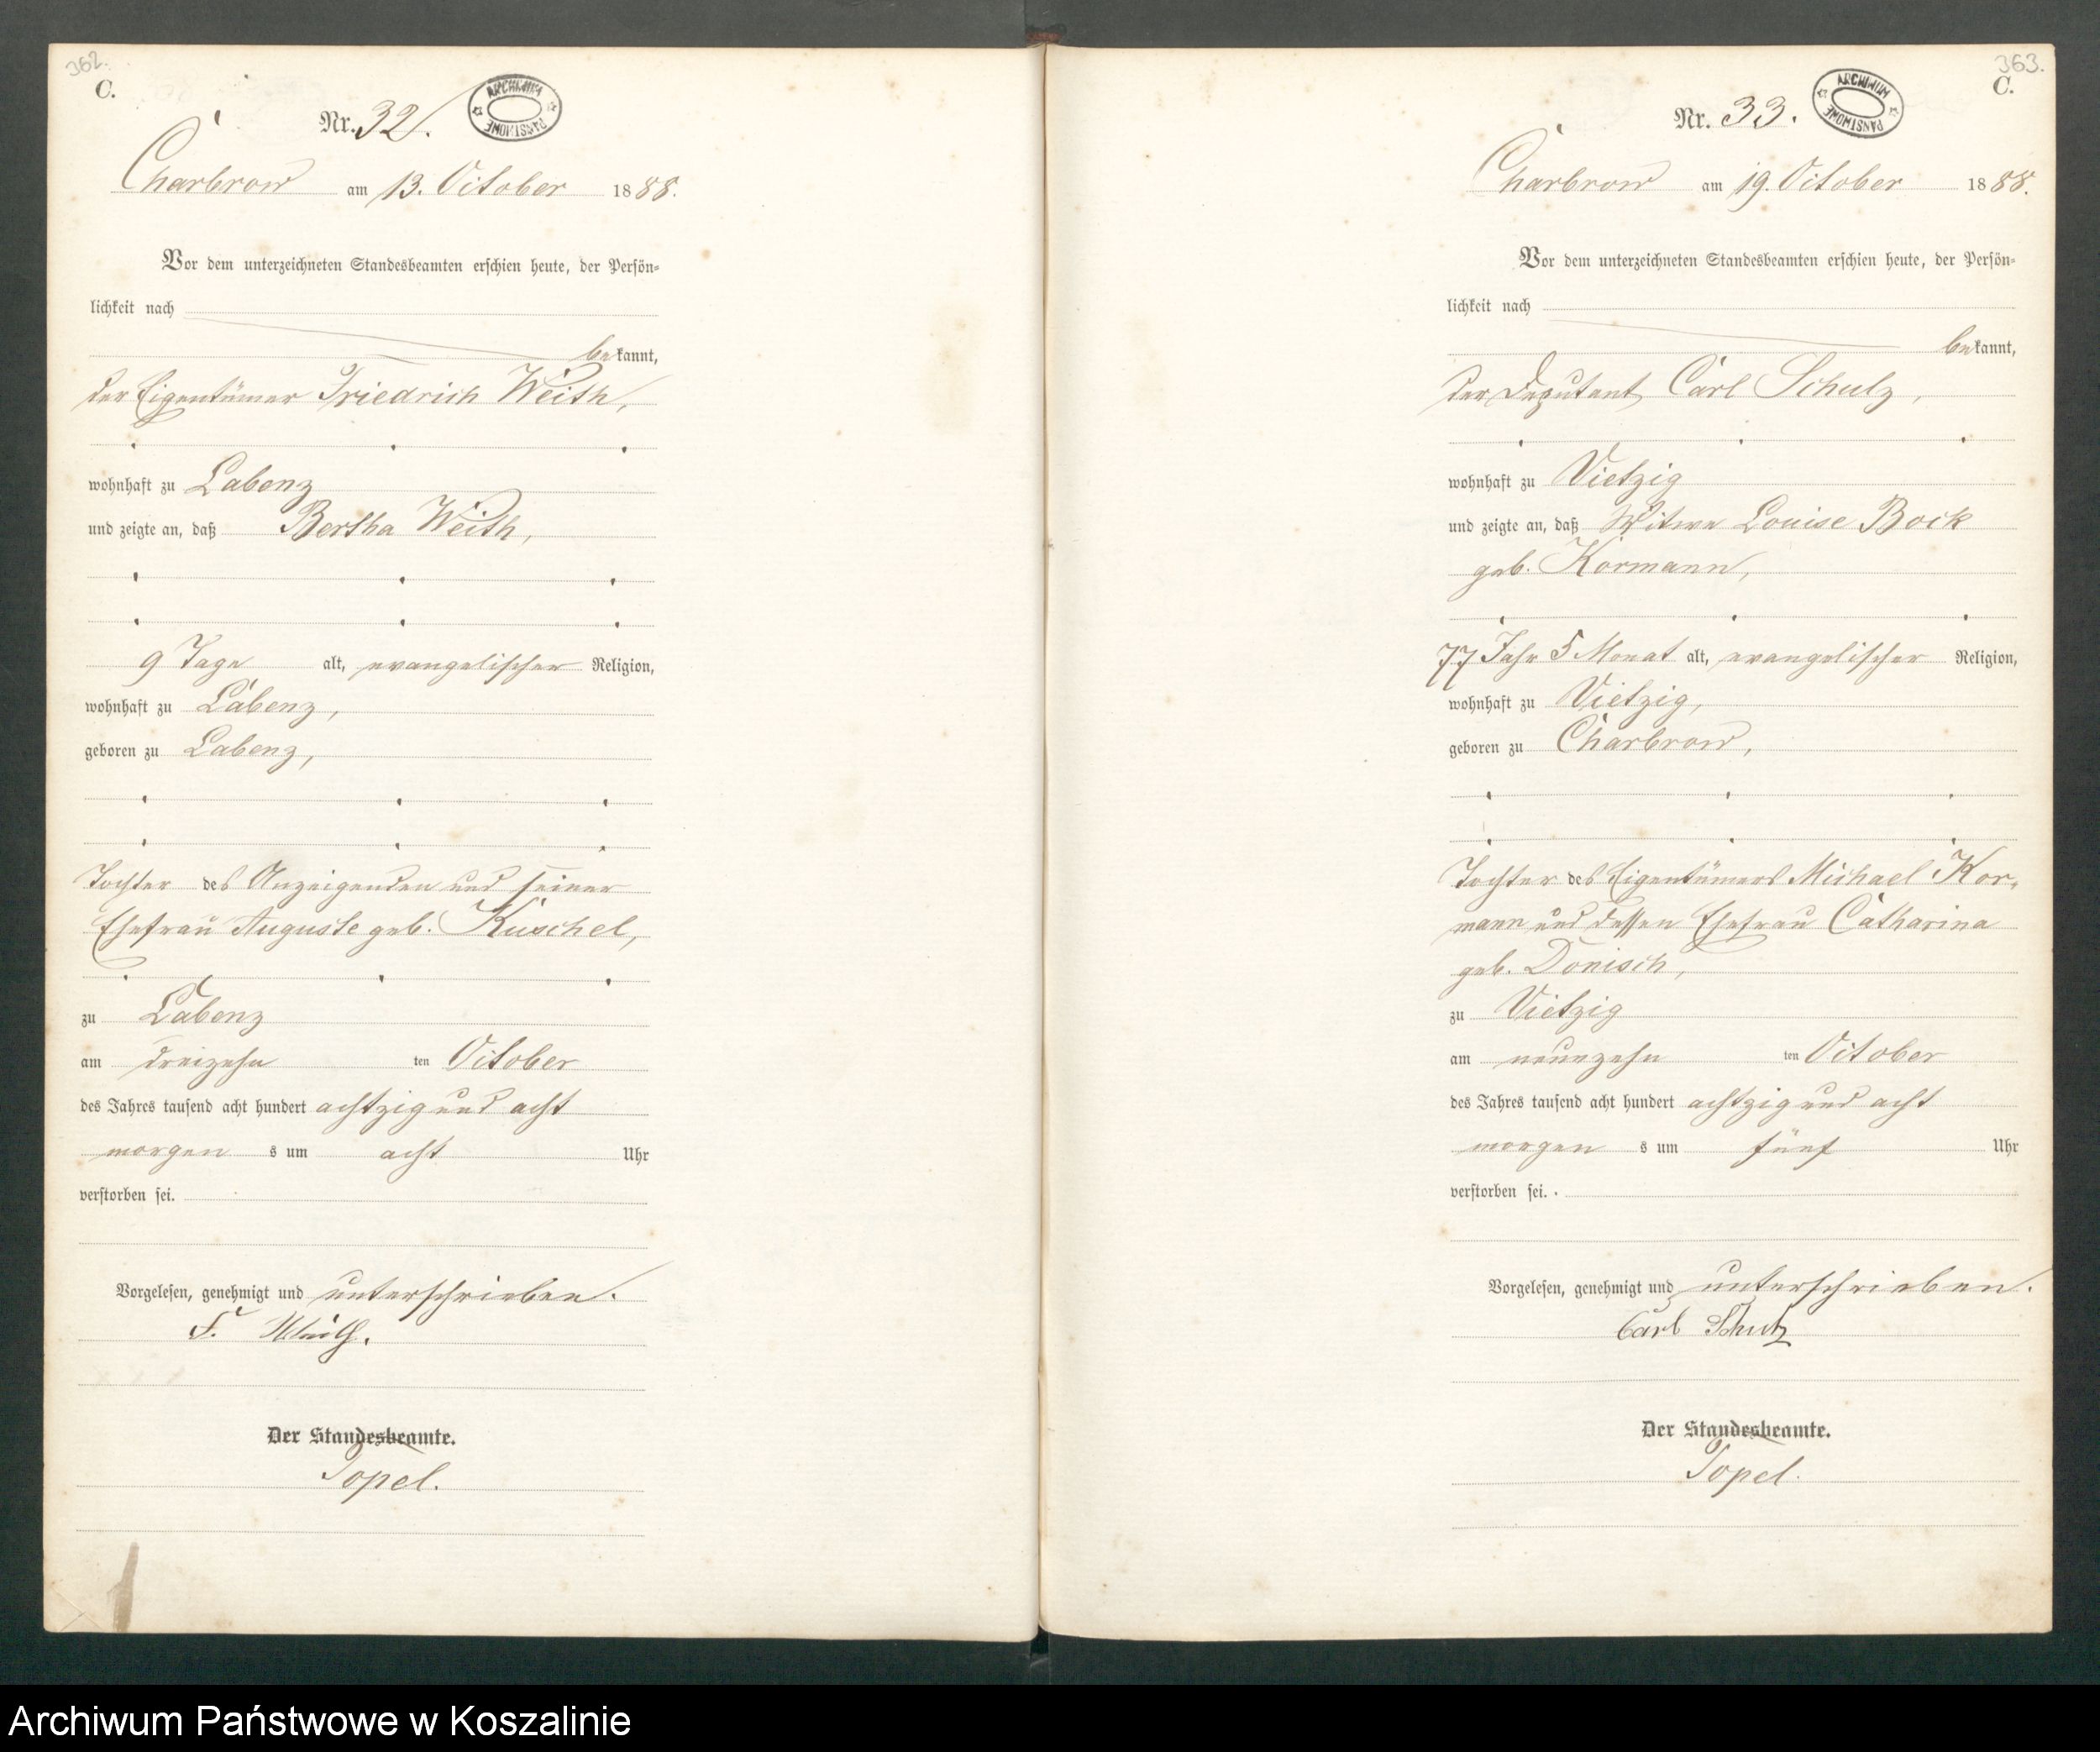 362.
C.
Nr. 32.
ARCHIWUM PAŃSTWOWE
Charbrow am 13. October 1888.
Vor dem unterzeichneten Standesbeamten erschien heute, der Persön-
lichkeit nach
bekannt,
der Eigentümer Friedrich Weith,
wohnhaft zu Labenz
und zeigte an, daß Bertha Weith,
9 Tage alt, evangelischer Religion,
wohnhaft zu Labenz,
geboren zu Labenz,
Tochter des Anzeigenden und seiner
Ehefrau Auguste geb. Kuschel,
zu Labenz
am dreizehn ten October
des Jahres tausend acht hundert achtzig und acht
morgen s um acht Uhr
verstorben sei.
Vorgelesen, genehmigt und unterschrieben.
F. Weith.
Der Standesbeamte.
Topel.
363.
C.
Nr. 33.
ARCHIWUM PAŃSTWOWE
Charbrow am 19. October 1888.
Vor dem unterzeichneten Standesbeamten erschien heute, der Persön-
lichkeit nach
bekannt,
der Deputant Carl Schulz,
wohnhaft zu Vietzig
und zeigte an, daß Witwe Louise Bock
geb. Kormann,
77 Jahr 5 Monat alt, evangelischer Religion,
wohnhaft zu Vietzig,
geboren zu Charbrow,
Tochter des Eigentümers Michael Kor-
mann und dessen Ehefrau Catharina
geb. Donisch,
zu Vietzig
am neunzehn ten October
des Jahres tausend acht hundert achtzig und acht
morgen s um fünf Uhr
verstorben sei.
Vorgelesen, genehmigt und unterschrieben.
Carl Schulz
Der Standesbeamte.
Topel.
Archiwum Państwowe w Koszalinie